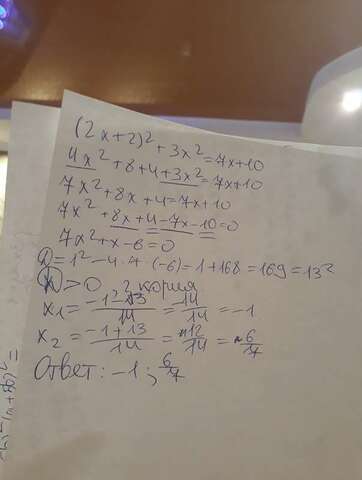 (2x+2)²+3x²=7x+10
4x²+8+4+3x²=7x+10
7x²+8x+4=7x+10
7x²+8x+4-7x-10=0
7x²+x-6=0
D=1²-4·7·(-6)=1+168=169=13²
D>0 2 корня
x₁=(-1-13)/14=14/14=-1
x₂=(-1+13)/14=12/14=6/7
Ответ: -1; 6/7